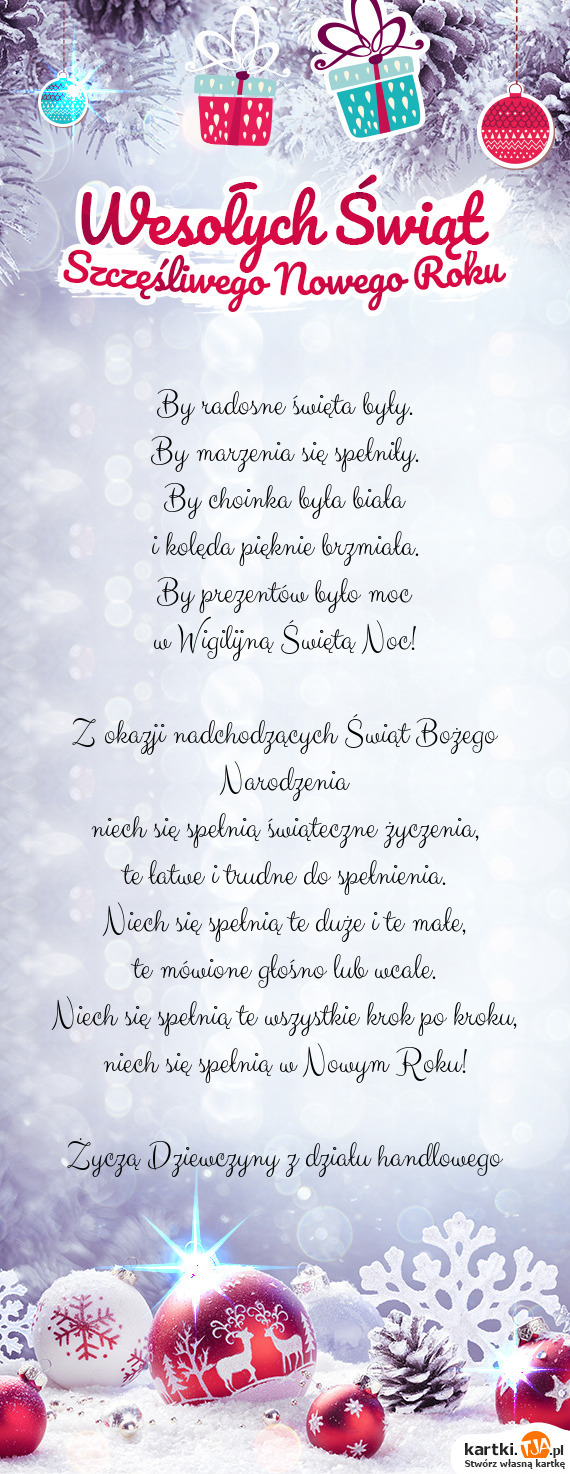 Wesołych Świąt
Szczęśliwego Nowego Roku
By radosne święta były.
By marzenia się spełniły.
By choinka była biała
i kolęda pięknie brzmiała.
By prezentów było moc
w Wigilijną Świętą Noc!
Z okazji nadchodzących Świąt Bożego
Narodzenia
niech się spełnią świąteczne życzenia,
te łatwe i trudne do spełnienia.
Niech się spełnią te duże i te małe,
te mówione głośno lub wcale.
Niech się spełnią te wszystkie krok po kroku,
niech się spełnią w Nowym Roku!
Życzą Dziewczyny z działu handlowego
kartki.TJA.pl
Stwórz własną kartkę